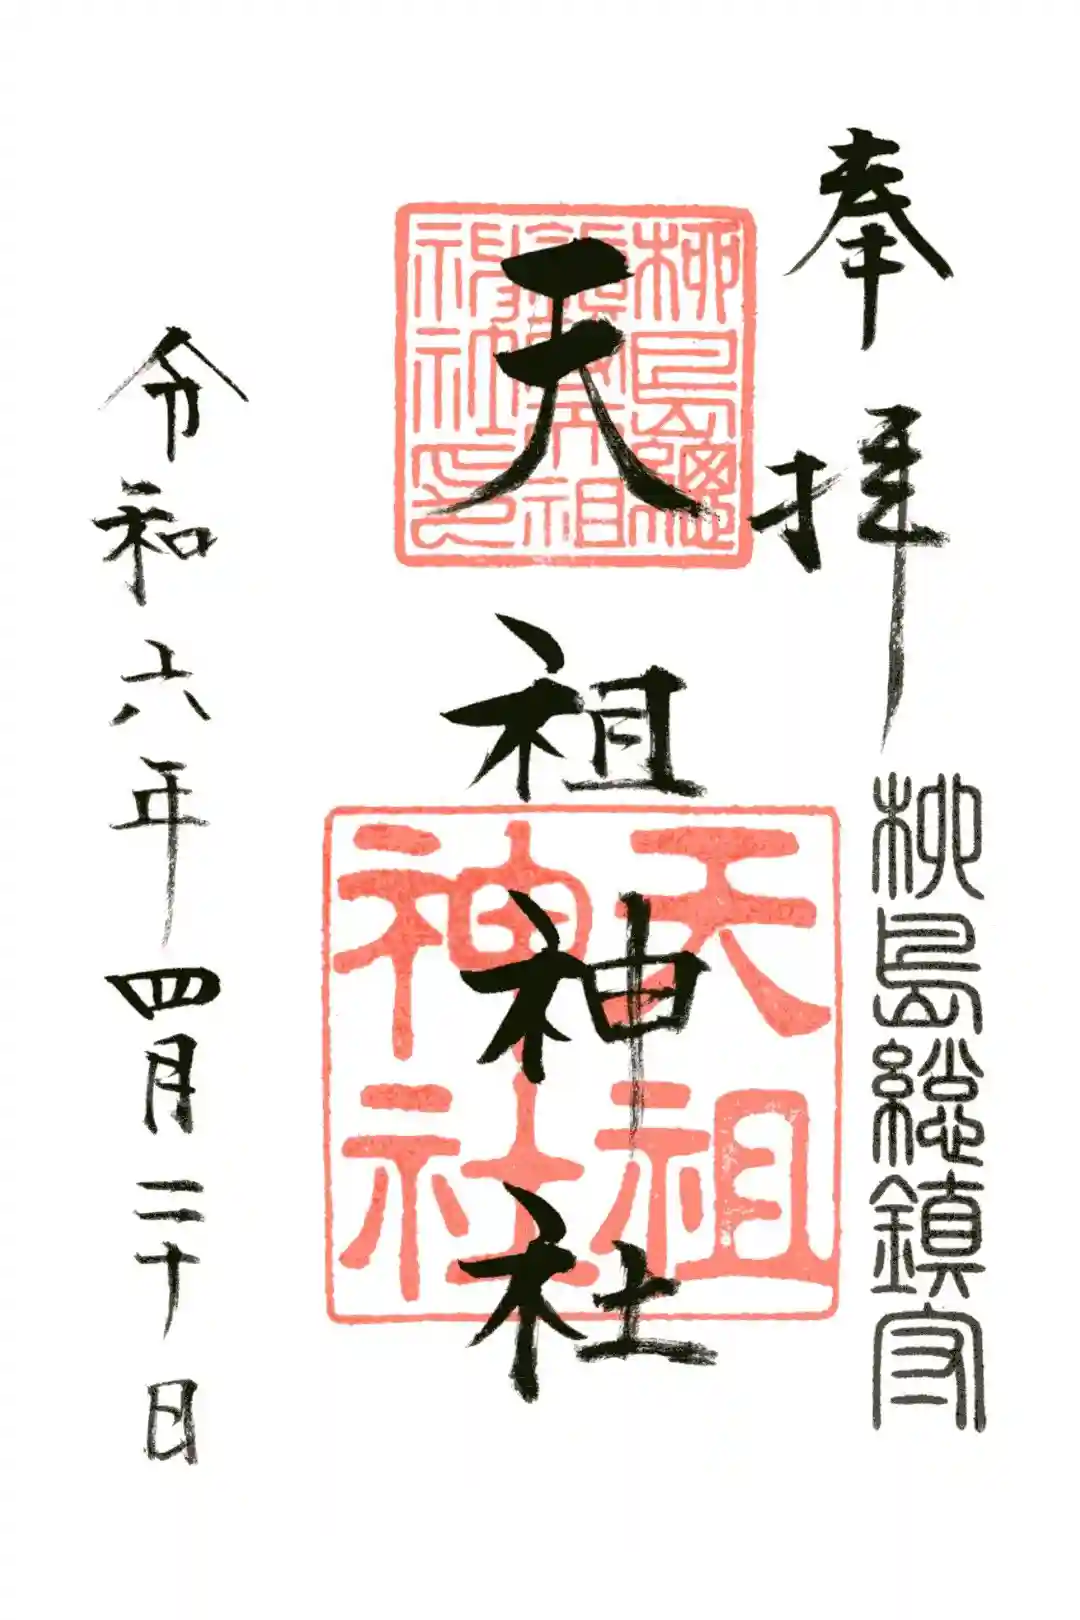 奉拝
柳島総鎮守
天祖神社
柳島總
鎮守天祖
神社印
天祖
神社
令和六年四月二十日